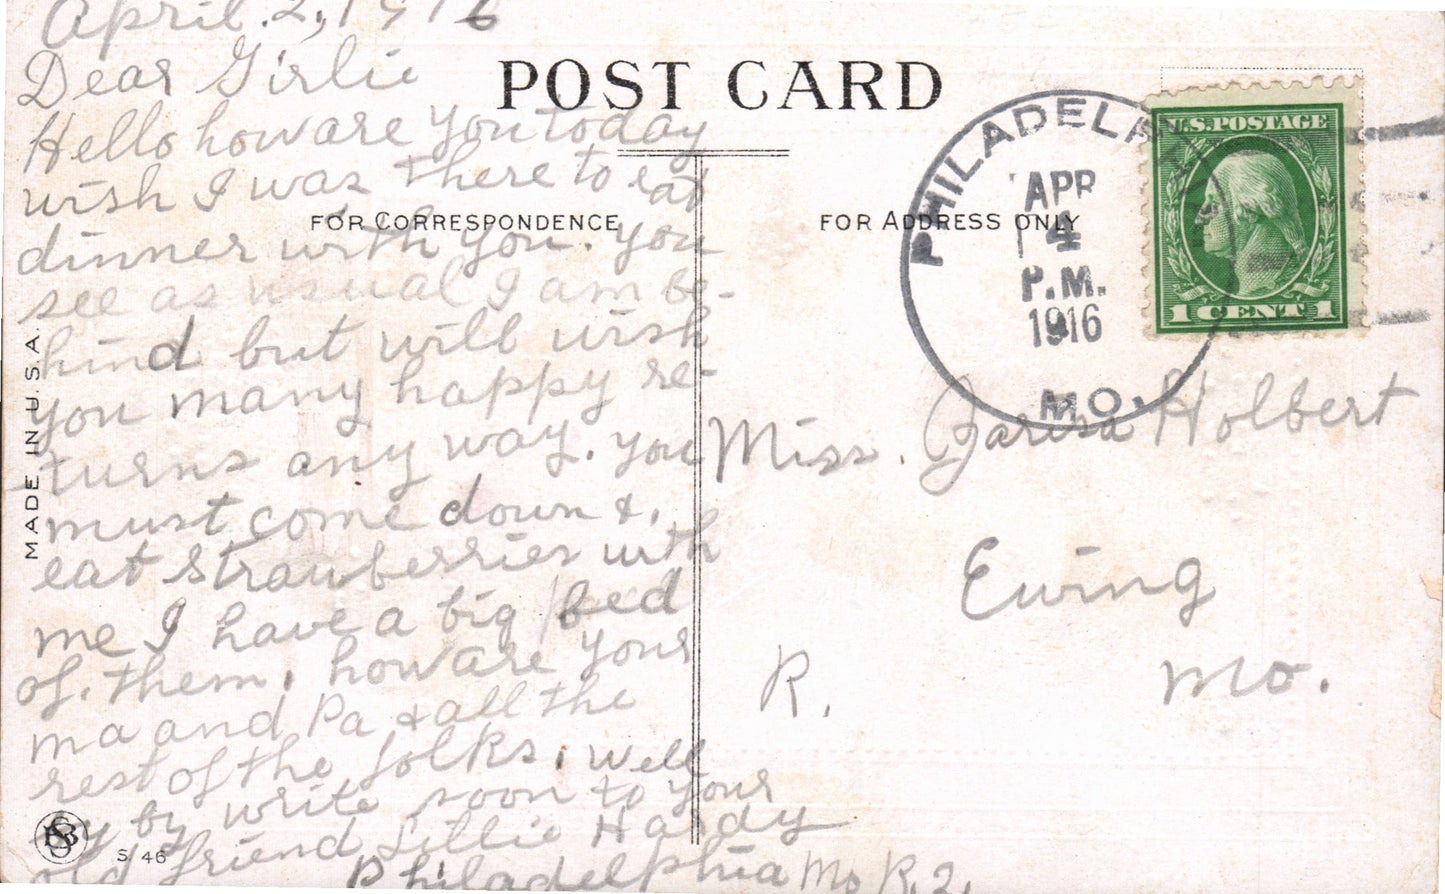 April 2, 1916
Dear Girlie
Hello how are you today
wish I was there to eat
dinner with you. you
see as usual I am be-
hind but will wish
you many happy re-
turns any way. you
must come down &,
eat strawberries with
me I have a big bed
of. them, how are your
ma and Pa & all the
rest of the folks, well
by by write soon to your
old friend Lillie Hardy
Philadelphia Mo R. 2.
POST CARD
FOR CORRESPONDENCE
FOR ADDRESS ONLY
PHILADELPHIA
APR
4
P.M.
1916
MO.
U.S. POSTAGE
1 CENT 1
Miss. Holbert
Ewing
Mo.
R.
MADE IN U.S.A.
S. 46